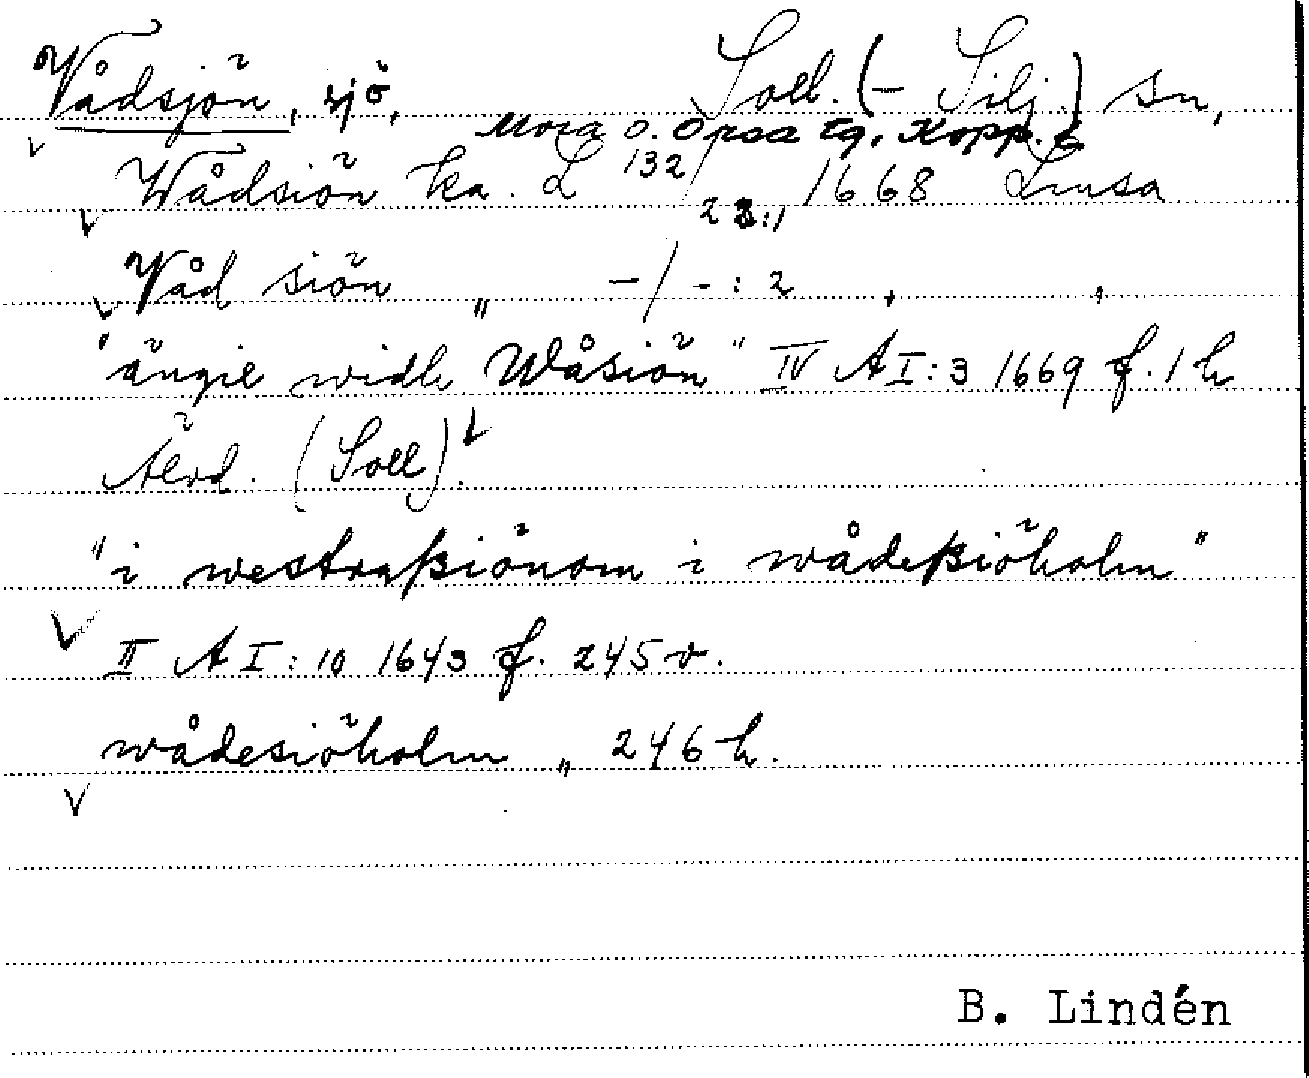 Vådsjön, sjö, Soll. (- Silj.) sn,
Mora o. Orsa tg, Kopp.
Wådsiön ka. L 132/23:1 1668 Limsa
Våd siön „ -/-:2 " "
"ängie widh Wåsiön" IV A I:3 1669 f. 1 h
Älvd. (Soll).
"i westraßiönom i wådeßiöholm"
II A I:10 1643 f. 245 v.
wådesiöholm „ 246 h.
B. Lindén